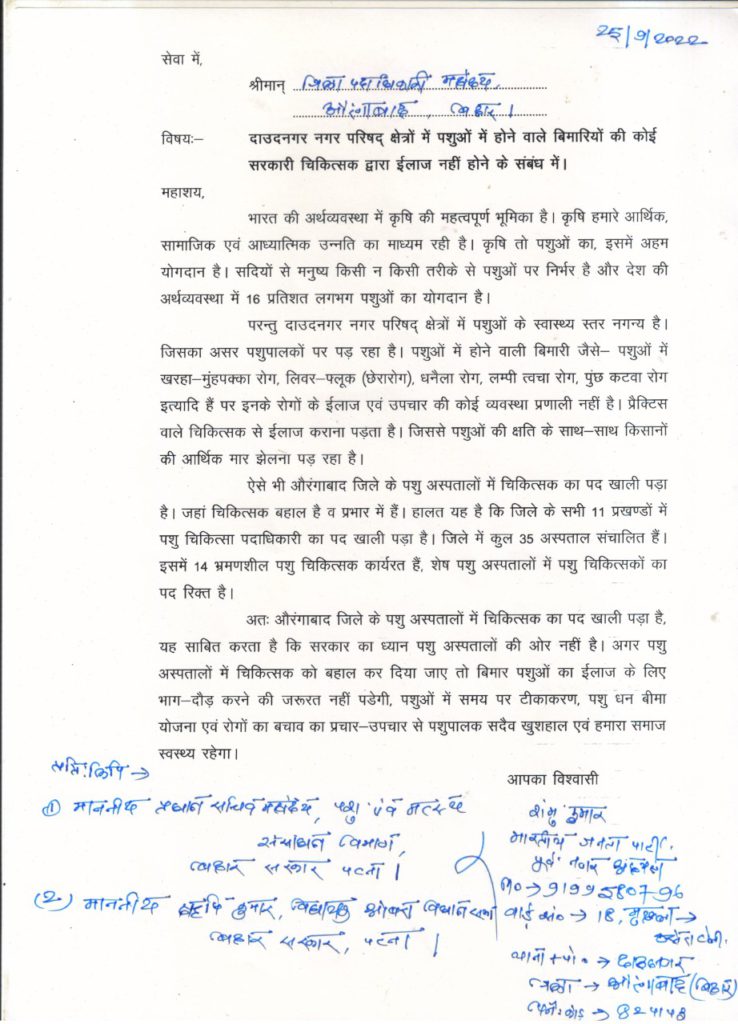 25/9/2022
सेवा में,
श्रीमान् जिला पदाधिकारी महोदय,
औरंगाबाद, बिहार।
विषयः– दाउदनगर नगर परिषद् क्षेत्रों में पशुओं में होने वाले बिमारियों की कोई
सरकारी चिकित्सक द्वारा ईलाज नहीं होने के संबंध में।
महाशय,
भारत की अर्थव्यवस्था में कृषि की महत्वपूर्ण भूमिका है। कृषि हमारे आर्थिक,
सामाजिक एवं आध्यात्मिक उन्नति का माध्यम रही है। कृषि तो पशुओं का, इसमें अहम
योगदान है। सदियों से मनुष्य किसी न किसी तरीके से पशुओं पर निर्भर है और देश की
अर्थव्यवस्था में 16 प्रतिशत लगभग पशुओं का योगदान है।
परन्तु दाउदनगर नगर परिषद् क्षेत्रों में पशुओं के स्वास्थ्य स्तर नगन्य है।
जिसका असर पशुपालकों पर पड़ रहा है। पशुओं में होने वाली बिमारी जैसे– पशुओं में
खरहा–मुंहपक्का रोग, लिवर–फ्लूक (छेरारोग), धनैला रोग, लम्पी त्वचा रोग, पुंछ कटवा रोग
इत्यादि हैं पर इनके रोगों के ईलाज एवं उपचार की कोई व्यवस्था प्रणाली नहीं है। प्रैक्टिस
वाले चिकित्सक से ईलाज कराना पड़ता है। जिससे पशुओं की क्षति के साथ–साथ किसानों
की आर्थिक मार झेलना पड़ रहा है।
ऐसे भी औरंगाबाद जिले के पशु अस्पतालों में चिकित्सक का पद खाली पड़ा
है। जहां चिकित्सक बहाल है व प्रभार में हैं। हालत यह है कि जिले के सभी 11 प्रखण्डों में
पशु चिकित्सा पदाधिकारी का पद खाली पड़ा है। जिले में कुल 35 अस्पताल संचालित हैं।
इसमें 14 भ्रमणशील पशु चिकित्सक कार्यरत हैं, शेष पशु अस्पतालों में पशु चिकित्सकों का
पद रिक्त है।
अतः औरंगाबाद जिले के पशु अस्पतालों में चिकित्सक का पद खाली पड़ा है,
यह साबित करता है कि सरकार का ध्यान पशु अस्पतालों की ओर नहीं है। अगर पशु
अस्पतालों में चिकित्सक को बहाल कर दिया जाए तो बिमार पशुओं का ईलाज के लिए
भाग–दौड़ करने की जरूरत नहीं पडेगी, पशुओं में समय पर टीकाकरण, पशु धन बीमा
योजना एवं रोगों का बचाव का प्रचार–उपचार से पशुपालक सदैव खुशहाल एवं हमारा समाज
स्वस्थ्य रहेगा।
प्रति:लिपि →
(1) माननीय प्रधान सचिव महोदय, पशु एवं मत्स्य
संसाधन विभाग,
बिहार सरकार पटना।
(2) माननीय ऋषि कुमार, विधायक ओबरा विधान सभा
बिहार सरकार, पटना।
आपका विश्वासी
शंभु कुमार
भारतीय जनता पार्टी.
पूर्व नगर
मो० → 9199580796
वार्ड सं० → 18,
थाना + पो० → दाउदनगर
जिला → औरंगाबाद (बिहार)
पिन कोड → 824148